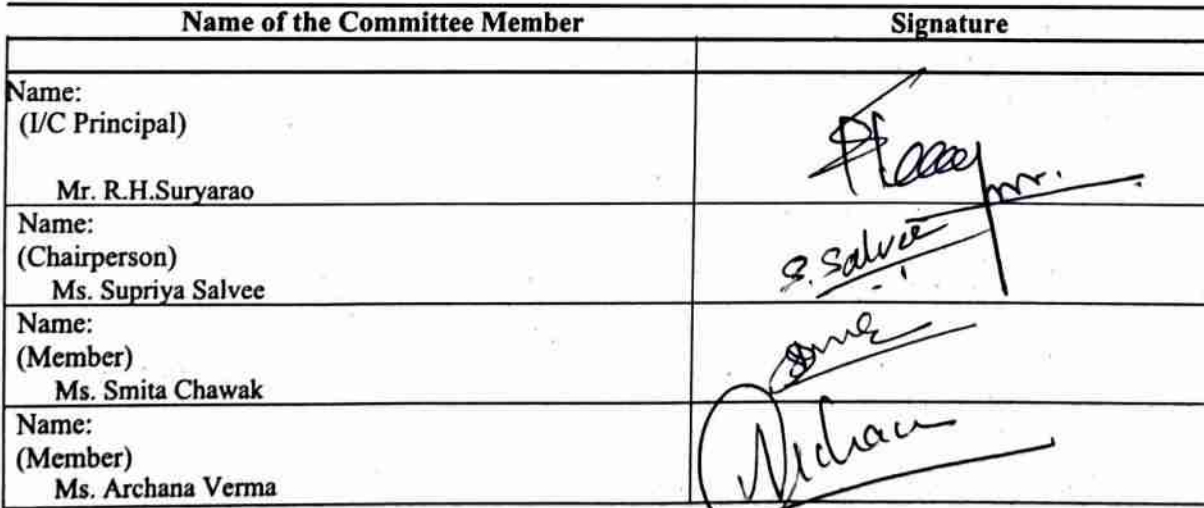 Name of the Committee Member Signature
Name:
(I/C Principal)
Mr. R.H.Suryarao
Name:
(Chairperson)
Ms. Supriya Salvee
S. Salvee
Name:
(Member)
Ms. Smita Chawak
Name:
(Member)
Ms. Archana Verma